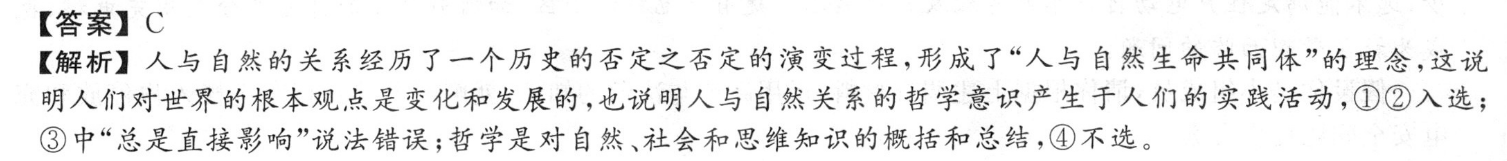 【答案】C
【解析】人与自然的关系经历了一个历史的否定之否定的演变过程,形成了“人与自然生命共同体”的理念,这说
明人们对世界的根本观点是变化和发展的,也说明人与自然关系的哲学意识产生于人们的实践活动,①②入选;
③中“总是直接影响”说法错误;哲学是对自然、社会和思维知识的概括和总结,④不选。